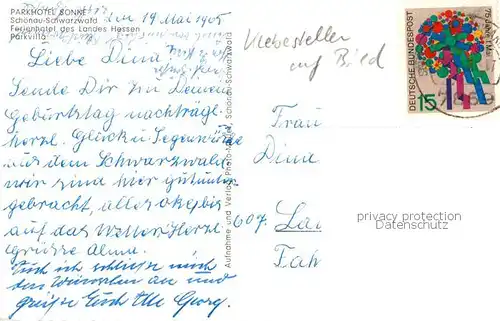 PARKHOTEL SONNE
Schönau-Schwarzwald
Ferienhotel des Landes Hessen
Parkvilla
den 19 Mai 1965
Liebe Dina
Sende Dir zu Deinem
Geburtstag nachträgl.
herzl. Glück u. Segenswünsche
aus dem Schwarzwald
wir sind hier gut unter
gebracht, alles okey bis
auf das Wetter Herzl.
Grüsse Alma.
Auch ich schließe mich
den Wünschen an und
grüße Euch Alle Georg.
Aufnahme und Verlag Photo- Schönau-Schwarzwald
Klebestellen
auf Bild
DEUTSCHE BUNDESPOST
15
75 JAHRE 1. MAI
Frau
Dina
607 La
Fah
privacy protection
Datenschutz